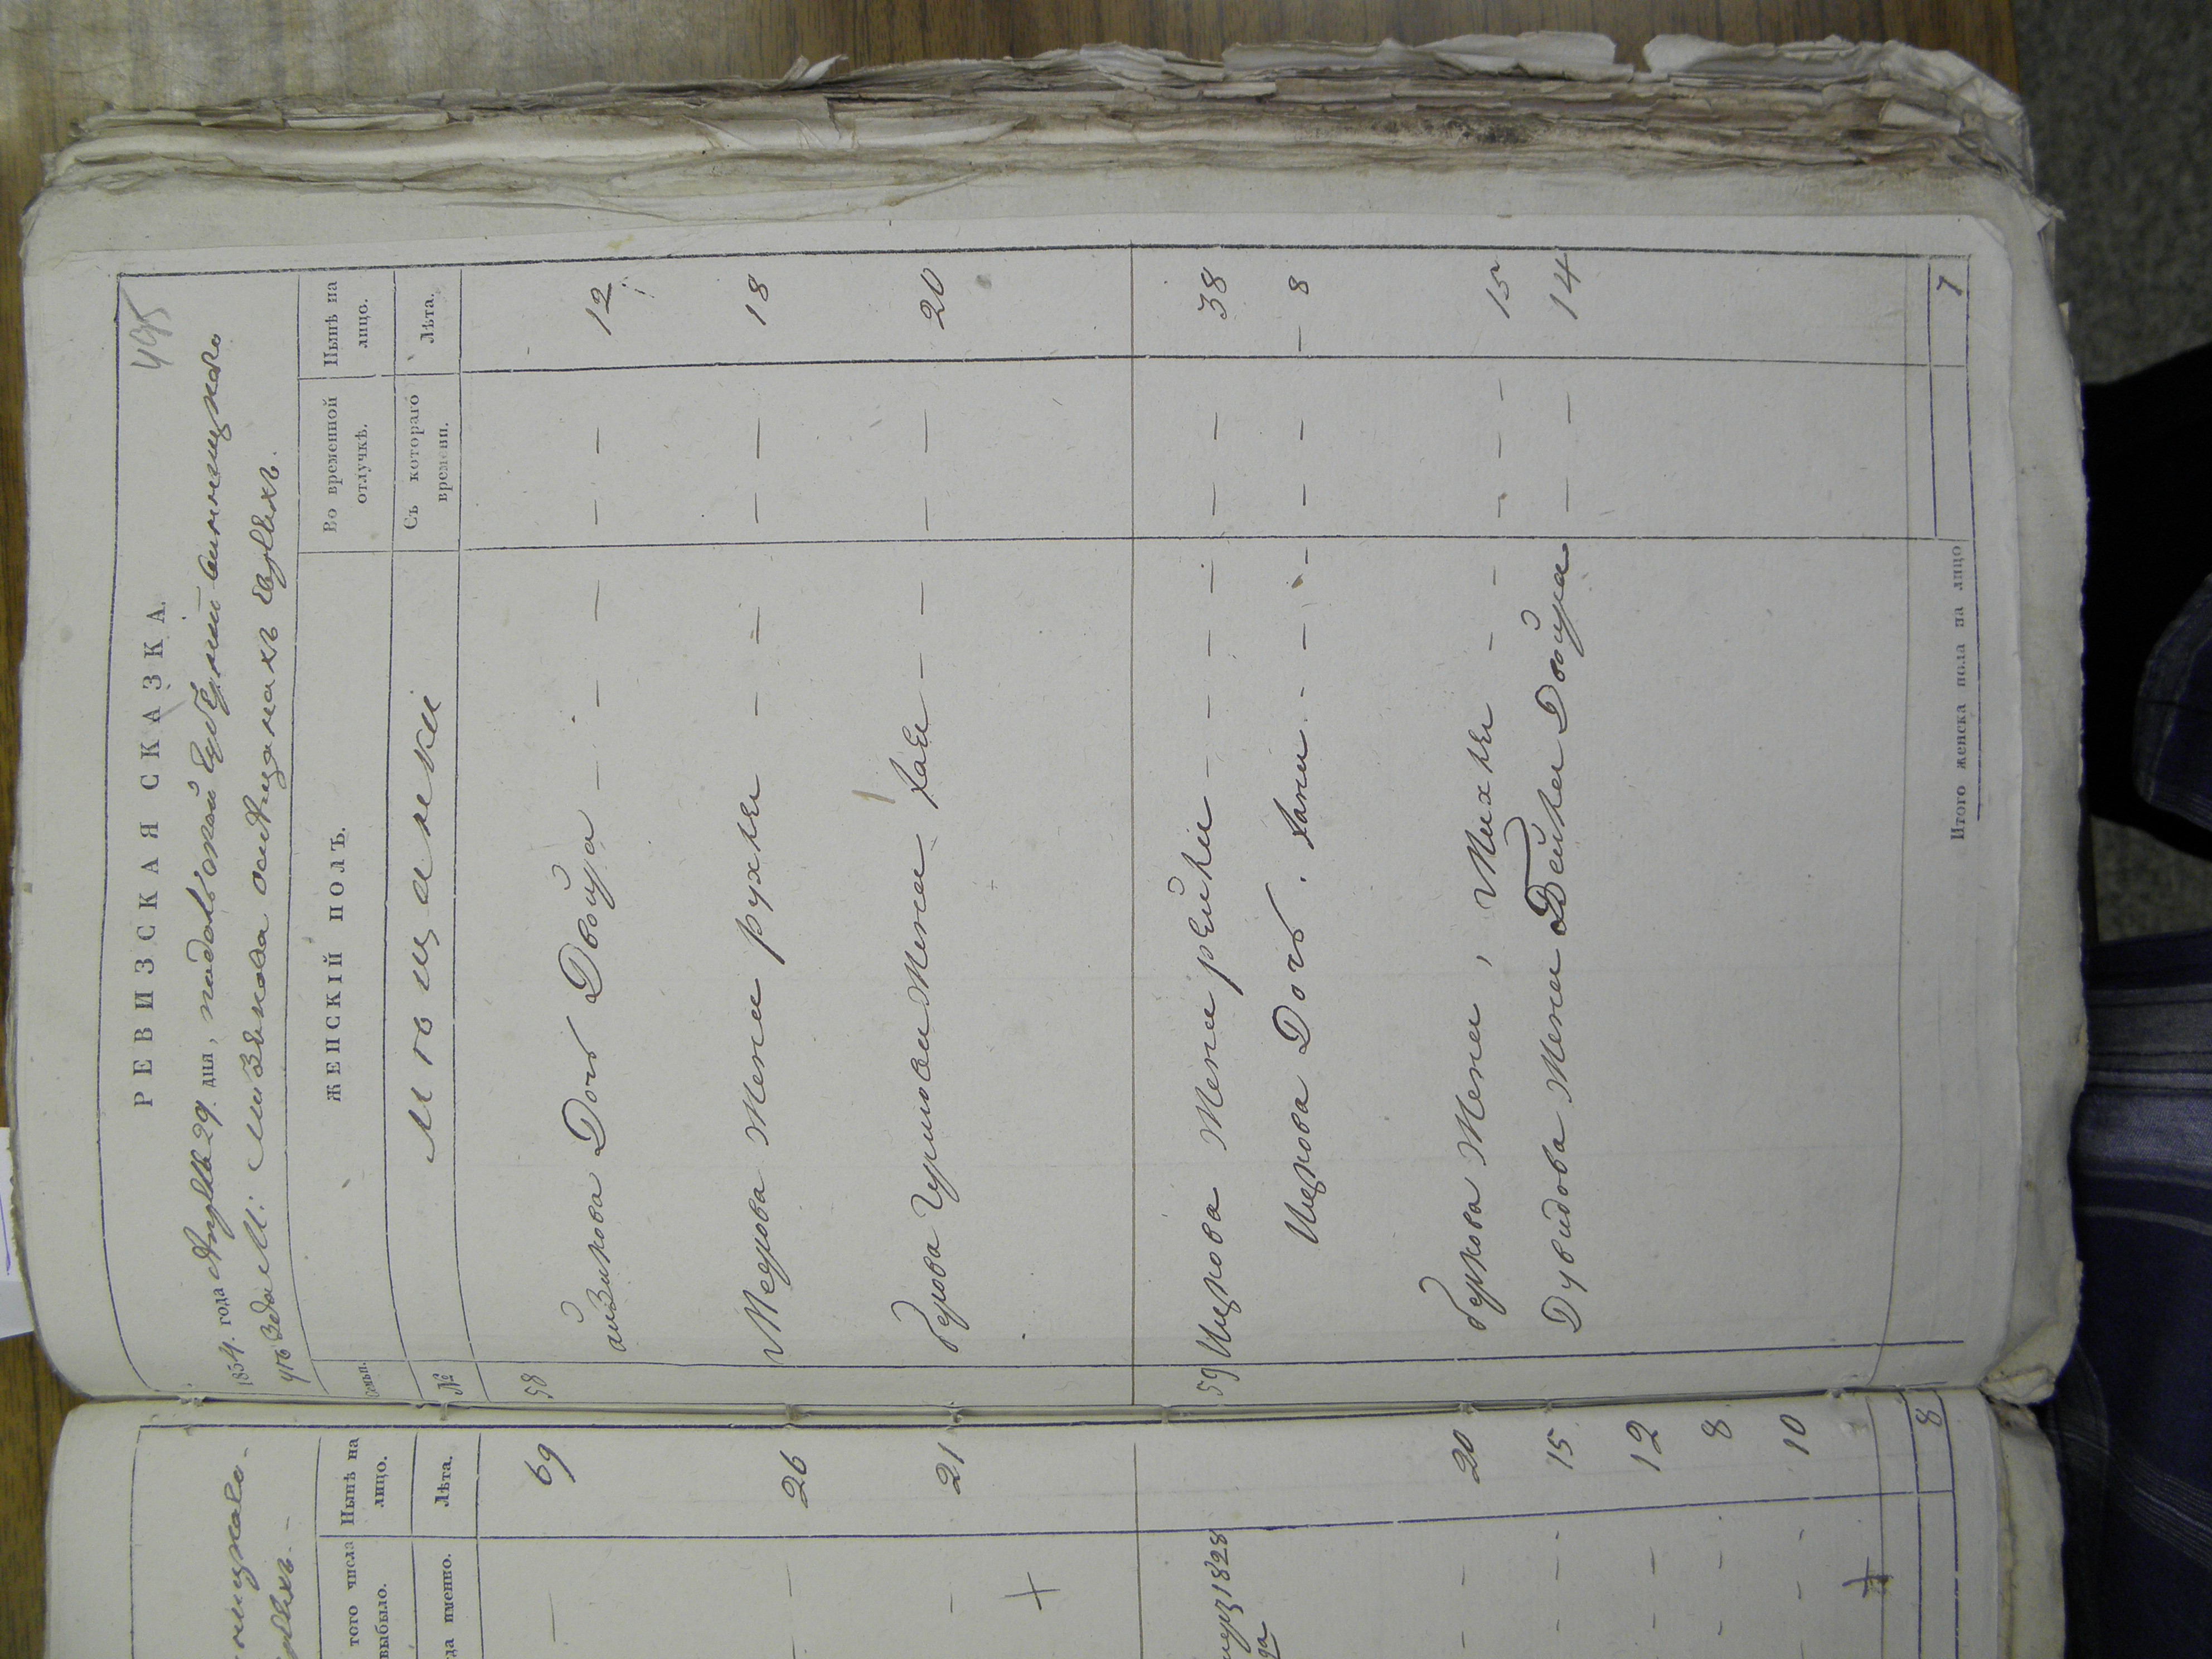 495
РЕВИЗСКАЯ СКАЗКА.
1834. года Апреля 29. дня, подольской Губернии винницкого
уезда М: о евреях.
ницкого
евреях.
Семьи.
ЖЕНСКІЙ ПОЛЪ.
Во временной отлучкѣ.
Нынѣ на лицо.
№
Мещанеки
Съ котораго времени.
Лѣта.
58
айзикова Дочь Двойра — — — — — 12
Меерова Жена рухля — — — — 18
Жена хая — — — — 20
59 Ицкова Жена рейзя — — — — — — 38
Ицкова Дочь. хана — — — — — — 8
Беркова Жена, Михля — — — — — 15
Дувидова Жена Бейла Двойра — — 14
Итого женска пола на лицо 7
того числа выбыло.
Нынѣ на лицо.
да именно.
Лѣта.
— 69
— 26
— 21
1828
— — 20
— — 15
— — 12
— — 8
— — 10
8